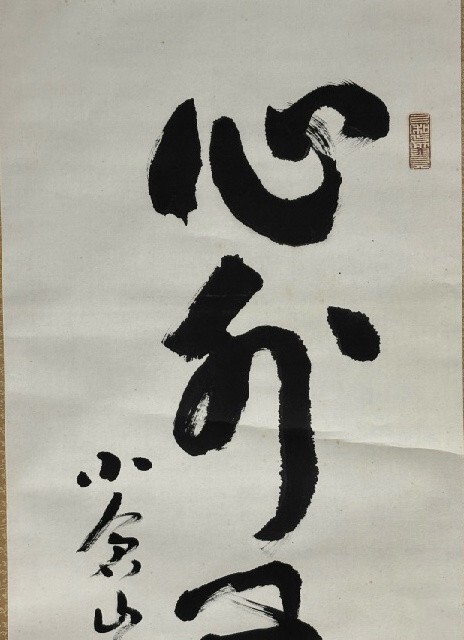 心外
小倉山